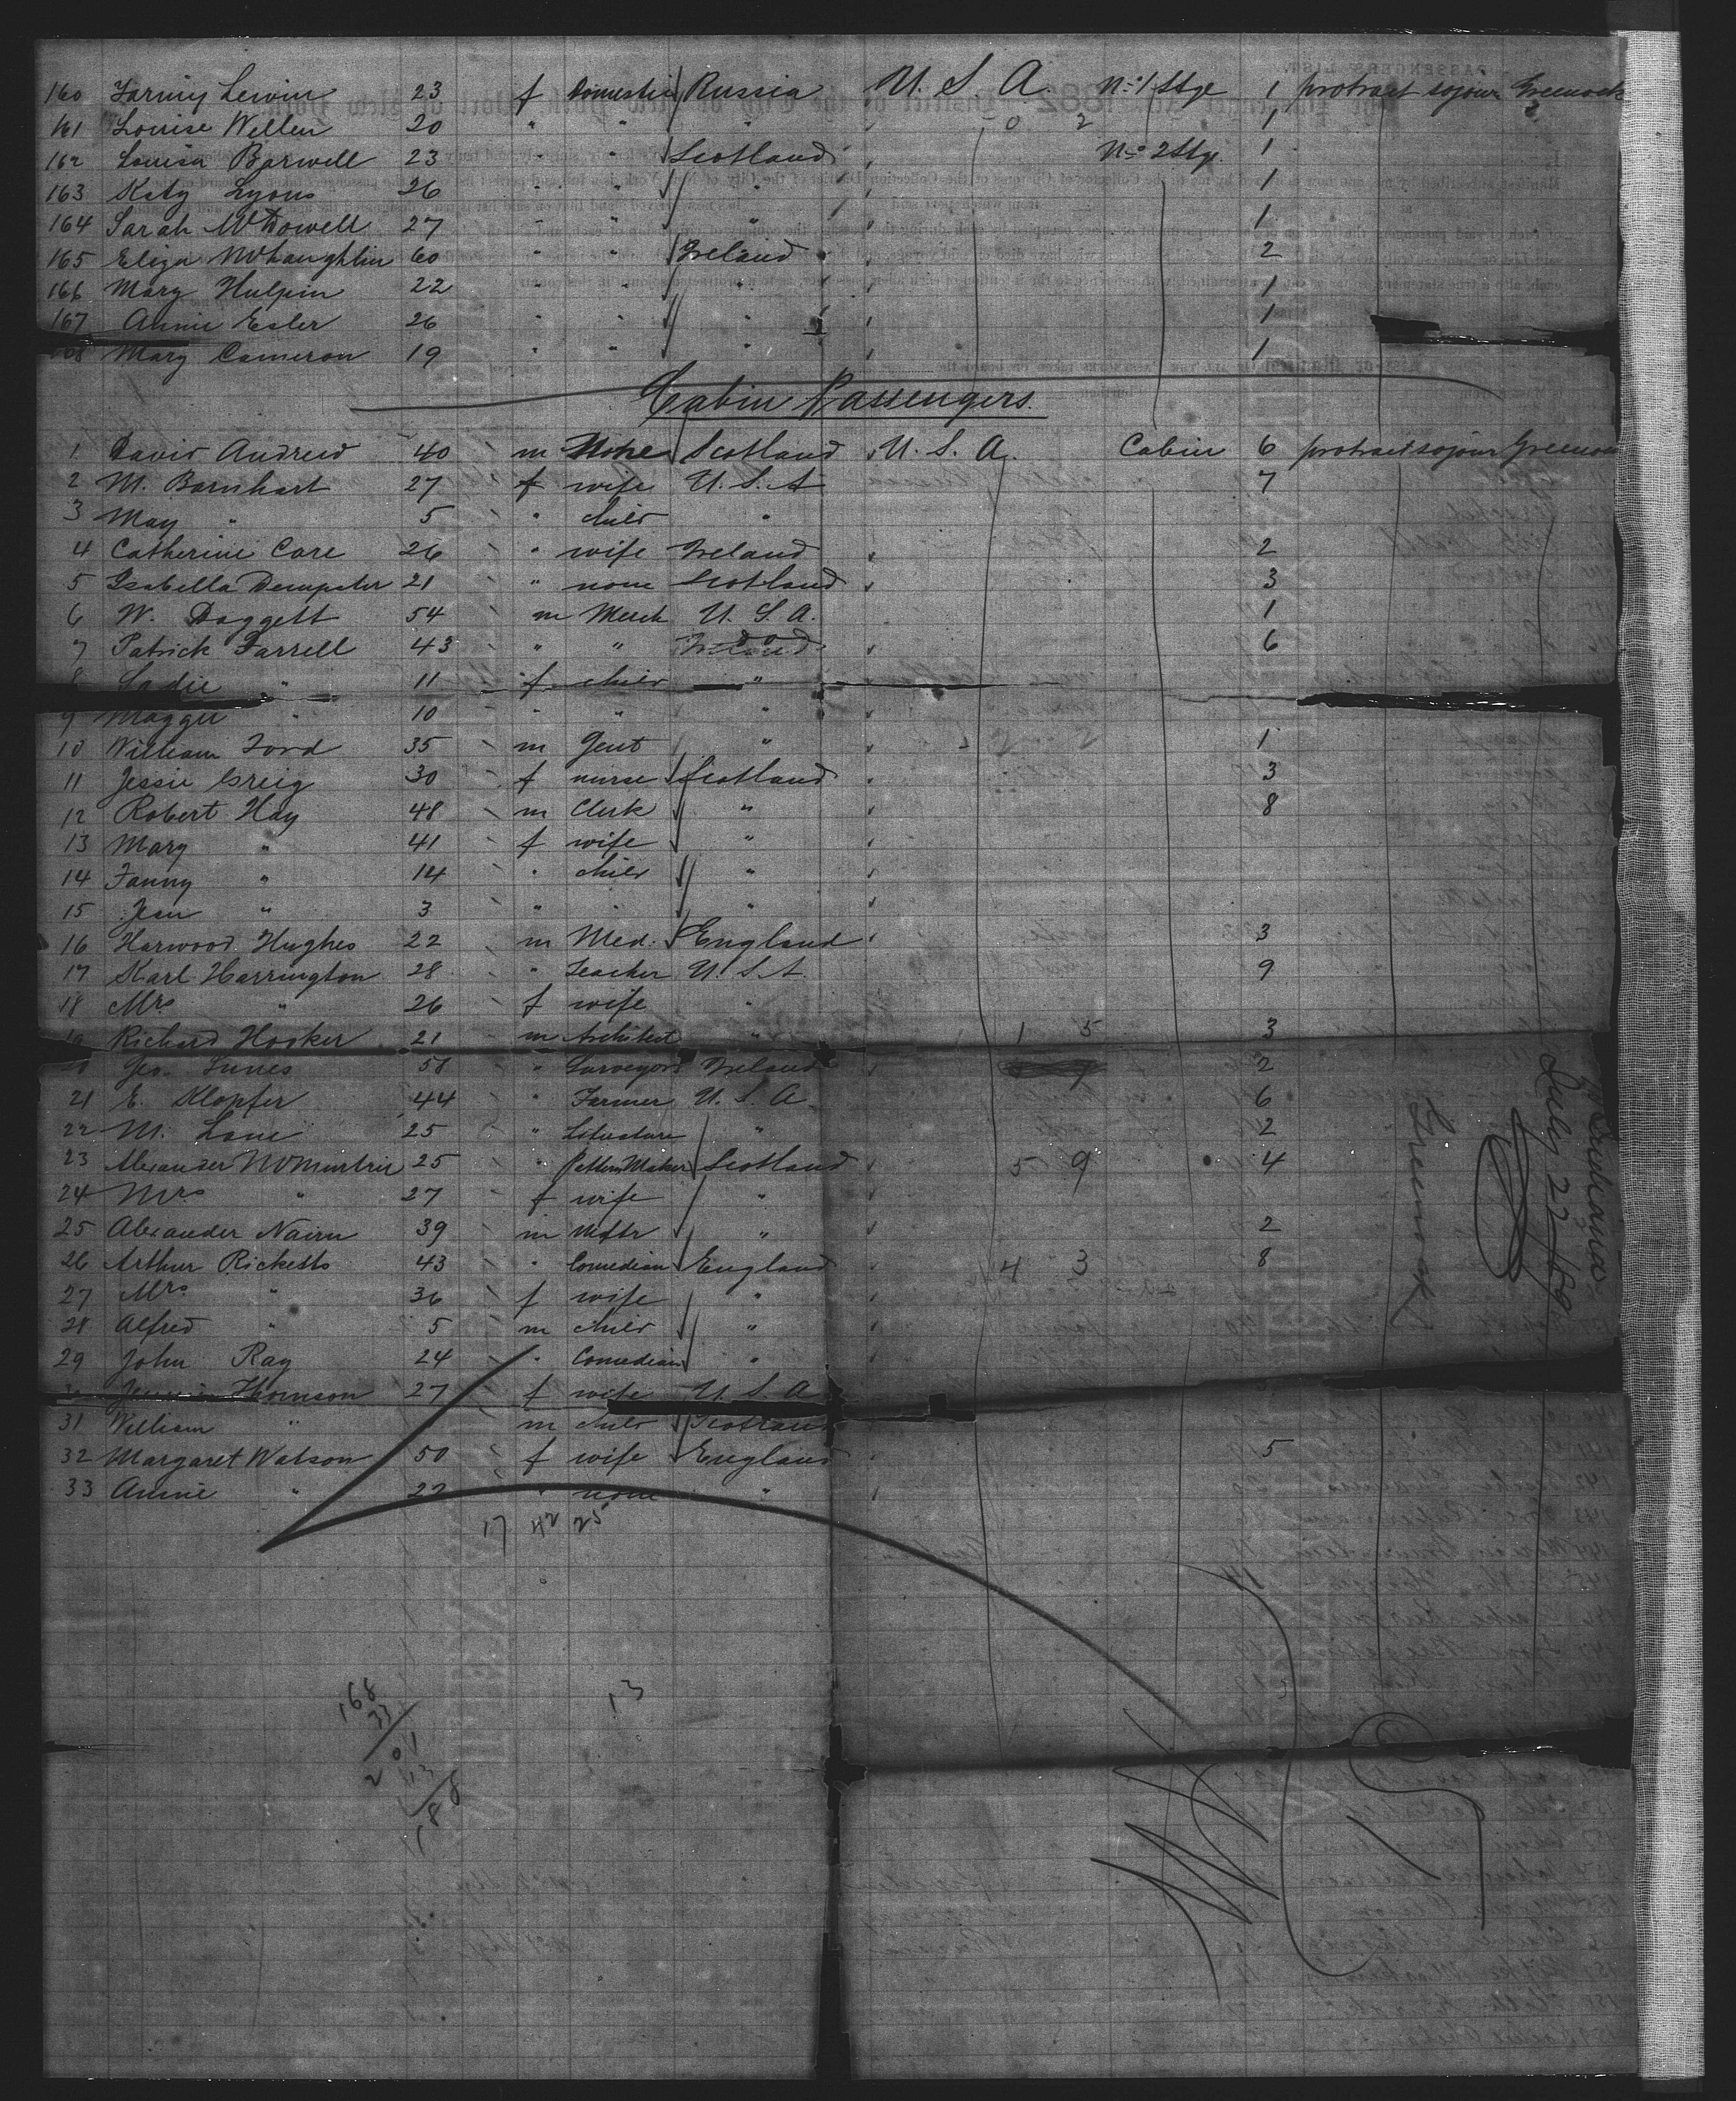 160 Fanny Lewin 23 f Domestic Russia U. S. A. No 1 Stge 1 protract sojour Greenock
161 Louise Wellen 20 " " " 1
162 Louisa Barwell 23 " " Scotland No 2 Stge 1
163 Katy Lyons 26 " " " 1
164 Sarah McDowell 27 " " " 1
165 Eliza McLaughlin 60 " " Ireland 2
166 Mary Hulpin 22 " " " 1
167 Annie Esler 26 " " " 1
168 Mary Cameron 19 " " " 1
Cabin Passengers.
1 David Andreid 40 m None Scotland U. S. A. Cabin 6 protract sojour Greenock
2 M. Barnhart 27 f wife U. S. A 7
3 May " 5 " child "
4 Catherine Care 26 " wife Ireland 2
5 Isabella Dempster 21 " none Scotland 3
6 W. Daggett 54 m Merch U. S. A. 1
7 Patrick Farrell 43 " " Ireland 6
8 Sadie " 11 f child "
9 Maggie " 10 " " "
10 William Ford 35 m Gent " 1
11 Jessie Greig 30 f nurse Scotland 3
12 Robert Hay 48 m Clerk " 8
13 Mary " 41 f wife "
14 Fanny " 14 " child "
15 Jean " 3 " " "
16 Harwood Hughes 22 m Med. England 3
17 Karl Harrington 28 " Teacher U. S. A 9
18 Mrs " 26 f wife "
19 Richard Hooker 21 m Architect " 1 5 3
20 Geo. Innes 58 " Surveyor Ireland 2
21 E. Klopfer 44 " Farmer U. S. A 6
22 M. Lane 25 " Literature " 2
23 Alexander McMurtrie 25 " Pattern Maker Scotland 5 9 4
24 Mrs " 27 f wife "
25 Alexander Nairn 39 m Mftr " 2
26 Arthur Ricketts 43 " Comedian England 4 3 8
27 Mrs " 36 f wife "
28 Alfred " 5 m child "
29 John Ray 24 " Comedian "
Thomson 27 f wife U. S. A
31 William " m child Scotland
32 Margaret Watson 50 f wife England 5
33 Annie " 22 " none "
17 42 25
13
168
33
201
13
188
Greenock
July 22/89